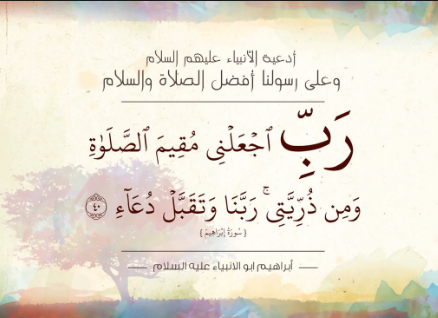 أدعية الأنبياء عليهم السلام
وعلى رسولنا أفضل الصلاة والسلام
رَبِّ ٱجْعَلْنِى مُقِيمَ ٱلصَّلَوٰةِ
وَمِن ذُرِّيَّتِى ۚ رَبَّنَا وَتَقَبَّلْ دُعَآءِ ٤٠
[ سُورَةُ إِبْرَاهِيمَ ]
أبراهيم ابو الانبياء عليه السلام